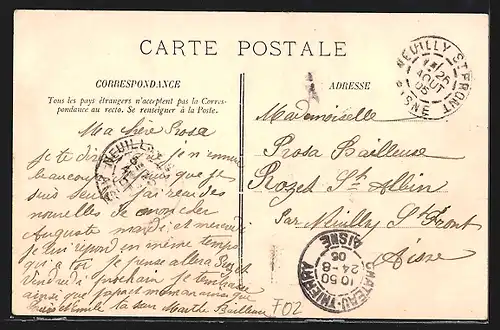 CARTE POSTALE
CORRESPONDANCE
Tous les pays étrangers n'acceptent pas la Corres-
pondance au recto. Se renseigner à la Poste.
Ma chère Rosa
Je te dirai je m'ennuie
beaucoup que je
suis seule j'ai reçu des
nouvelles de mon cher
Auguste mardi et mercredi
je lui répond en même temps
qu'à toi Je pense aller à Rozet
Vendredi prochain je t'embrasse
ainsi que papa et maman ainsi que
Louis et Emile ta sœur Marthe Bailleuse
ADRESSE
Mademoiselle
Rosa Bailleuse
Rozet St Albin
Par Neuilly St Front
Aisne
NEUILLY ST FRONT
26
AOUT
05
AISNE
NEUILLY
CHATEAU-THIERRY
10 50
24-8
05
AISNE
F02